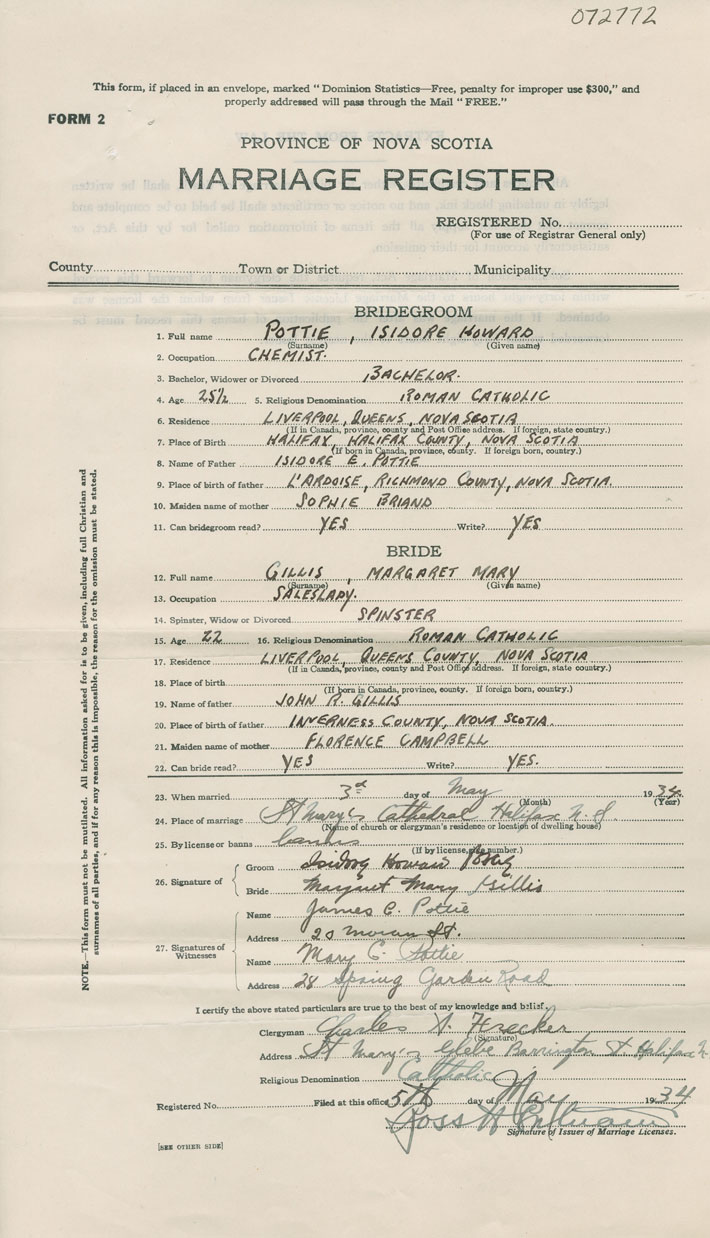 072772
This form, if placed in an envelope, marked "Dominion Statistics—Free, penalty for improper use $300," and
properly addressed will pass through the Mail "FREE."
FORM 2
PROVINCE OF NOVA SCOTIA
MARRIAGE REGISTER
REGISTERED No.
(For use of Registrar General only)
County Town or District Municipality
BRIDEGROOM
1. Full name POTTIE, ISIDORE HOWARD
(Surname) (Given name)
2. Occupation CHEMIST.
3. Bachelor, Widower or Divorced BACHELOR.
4. Age 25½ 5. Religious Denomination ROMAN CATHOLIC
6. Residence LIVERPOOL, QUEENS, NOVA SCOTIA
(If in Canada, province, county and Post Office address. If foreign, state country.)
7. Place of Birth HALIFAX, HALIFAX COUNTY, NOVA SCOTIA
(If born in Canada, province, county. If foreign born, country.)
8. Name of Father ISIDORE E. POTTIE
9. Place of birth of father L'ARDOISE, RICHMOND COUNTY, NOVA SCOTIA.
10. Maiden name of mother SOPHIE BRIAND
11. Can bridegroom read? YES Write? YES
BRIDE
12. Full name GILLIS, MARGARET MARY
(Surname) (Given name)
13. Occupation SALESLADY.
14. Spinster, Widow or Divorced SPINSTER
15. Age 22 16. Religious Denomination ROMAN CATHOLIC
17. Residence LIVERPOOL, QUEENS COUNTY, NOVA SCOTIA
(If in Canada, province, county and Post Office address. If foreign, state country.)
18. Place of birth
(If born in Canada, province, county. If foreign born, country.)
19. Name of father JOHN R. GILLIS
20. Place of birth of father INVERNESS COUNTY, NOVA SCOTIA.
21. Maiden name of mother FLORENCE CAMPBELL
22. Can bride read? YES Write? YES.
23. When married 3rd day of May 1934
(Month) (Year)
24. Place of marriage St Mary's Cathedral Halifax N. S
(Name of church or clergyman's residence or location of dwelling house)
25. By license or banns banns
(If by license, give number.)
26. Signature of Groom Isidore Howard Pottie
Bride Margaret Mary Gillis
27. Signatures of Witnesses Name James C. Pottie
Address 20 Moran St.
Name Mary C. Pottie
Address 28 Spring Garden Road
I certify the above stated particulars are true to the best of my knowledge and belief.
Clergyman Charles A.
(Signature)
Address St Mary's Glebe Barrington St Halifax N.
Religious Denomination Catholic
Registered No. Filed at this office 5th day of May 1934
Ross H
Signature of Issuer of Marriage Licenses.
[SEE OTHER SIDE]
NOTE.—This form must not be mutilated. All information asked for is to be given, including full Christian and
surnames of all parties, and if for any reason this is impossible, the reason for the omission must be stated.